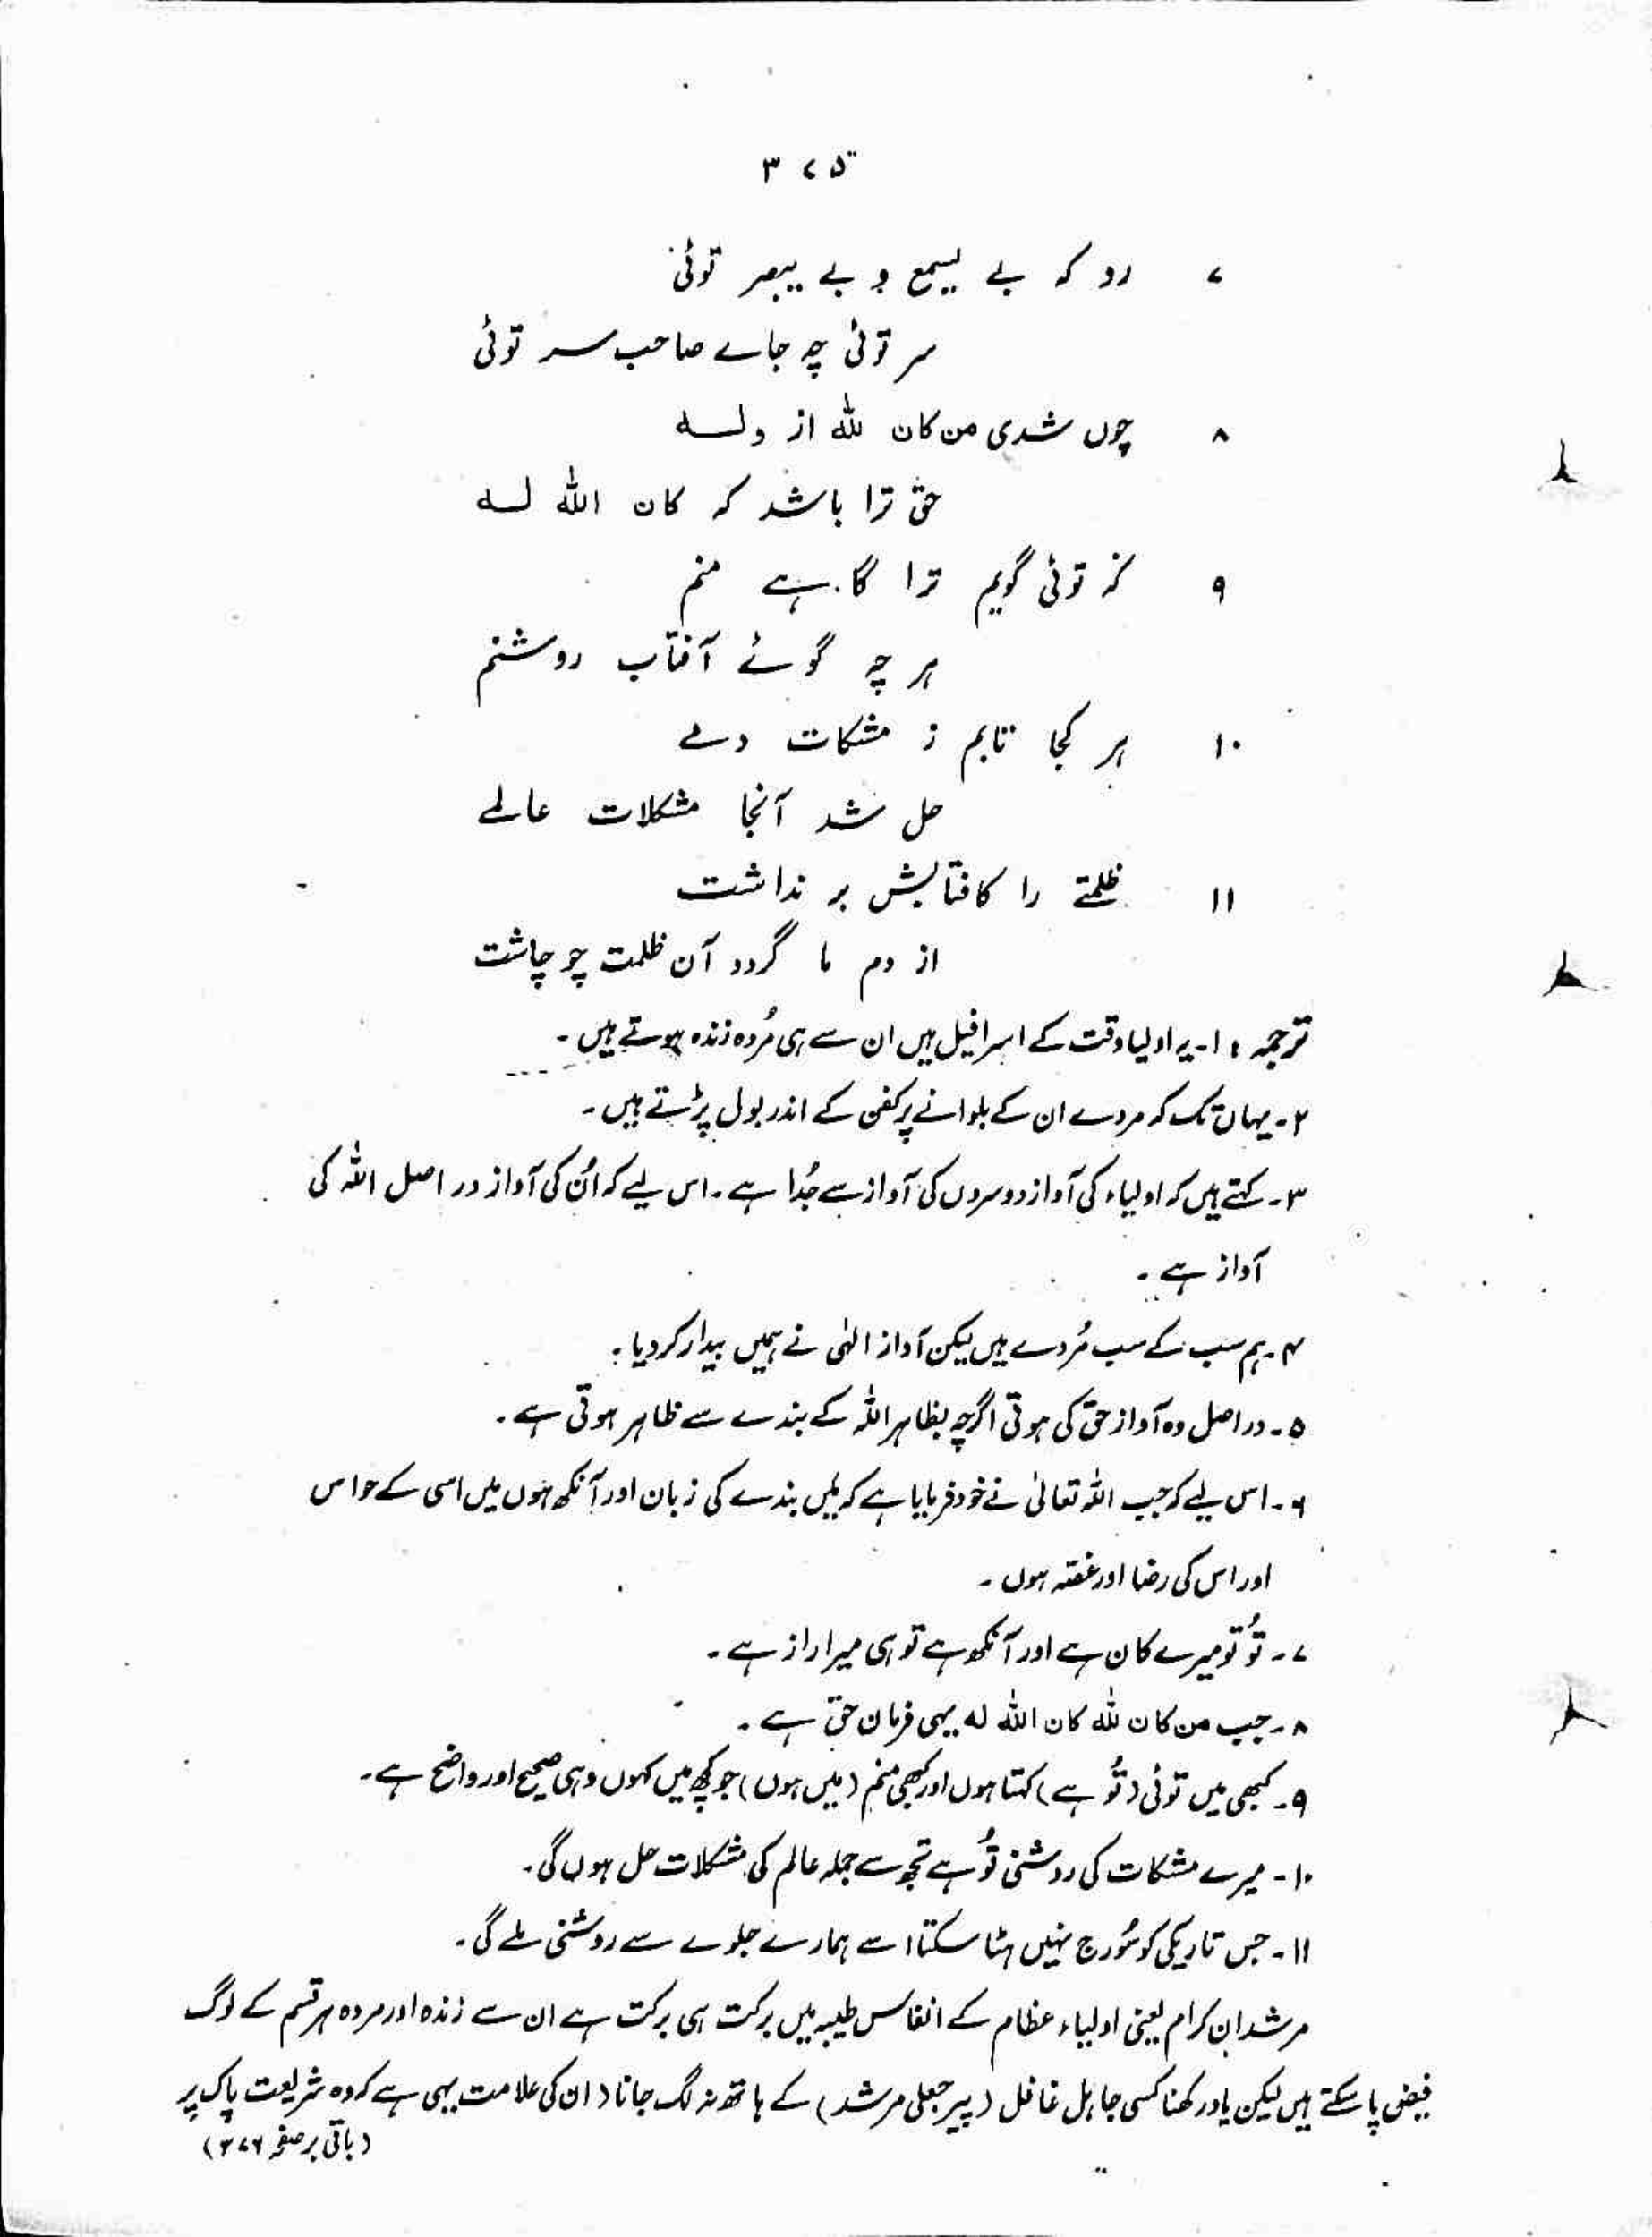 ۳۷۵
۷ رو کہ بے یسمع و بے یبصر توئی
سر توئی چہ جاے صاحب سر توئی
۸ چوں شدی من کان للہ از ولہ
حق ترا باشد کہ کان اللہ لہ
۹ گہ توئی گویم ترا گاہے منم
ہر چہ گوئے آفتاب روشنم
۱۰ ہر کجا تابم ز مشکات دمے
حل شد آنجا مشکلات عالمے
۱۱ ظلمتے را کافتابش بر نداشت
از دم ما گردد آن ظلمت چو چاشت
ترجمہ : ۱۔ یہ اولیا وقت کے اسرافیل ہیں ان سے ہی مُردہ زندہ ہوتے ہیں ۔
۲۔ یہاں تک کہ مردے ان کے بلوانے پر کفن کے اندر بول پڑتے ہیں ۔
۳۔ کہتے ہیں کہ اولیاء کی آواز دوسروں کی آواز سے جُدا ہے ۔ اس لیے کہ اُن کی آواز در اصل اللہ کی
آواز ہے ۔
۴۔ ہم سب کے سب مُردے ہیں لیکن آواز الٰہی نے ہمیں بیدار کر دیا ۔
۵۔ در اصل وہ آواز حق کی ہوتی اگرچہ بظاہر اللہ کے بندے سے ظاہر ہوتی ہے ۔
۶۔ اس لیے کہ جب اللہ تعالیٰ نے خود فرمایا ہے کہ میں بندے کی زبان اور آنکھ ہوں میں اسی کے حواس
اور اس کی رضا اور غصّہ ہوں ۔
۷۔ تُو تو میرے کان ہے اور آنکھ ہے تو ہی میرا راز ہے ۔
۸۔ جب من کان للہ کان اللہ لہ یہی فرمان حق ہے ۔
۹۔ کبھی میں توئی (تُو ہے) کہتا ہوں اور کبھی منم (میں ہوں) جو کچھ میں کہوں وہی صحیح اور واضح ہے ۔
۱۰۔ میرے مشکات کی روشنی تُو ہے تجھ سے جملہ عالم کی مشکلات حل ہوں گی ۔
۱۱۔ جس تاریکی کو سُورج نہیں ہٹا سکتا اسے ہمارے جلوے سے روشنی ملے گی ۔
مرشدانِ کرام یعنی اولیاء عظام کے انفاس طیبہ میں برکت ہی برکت ہے ان سے زندہ اور مردہ ہر قسم کے لوگ
فیض پا سکتے ہیں لیکن یاد رکھنا کسی جاہل غافل (پیر جعلی مرشد) کے ہاتھ نہ لگ جانا (ان کی علامت یہی ہے کہ وہ شریعت پاک پر
(باقی بر صفحہ ۳۷۶)